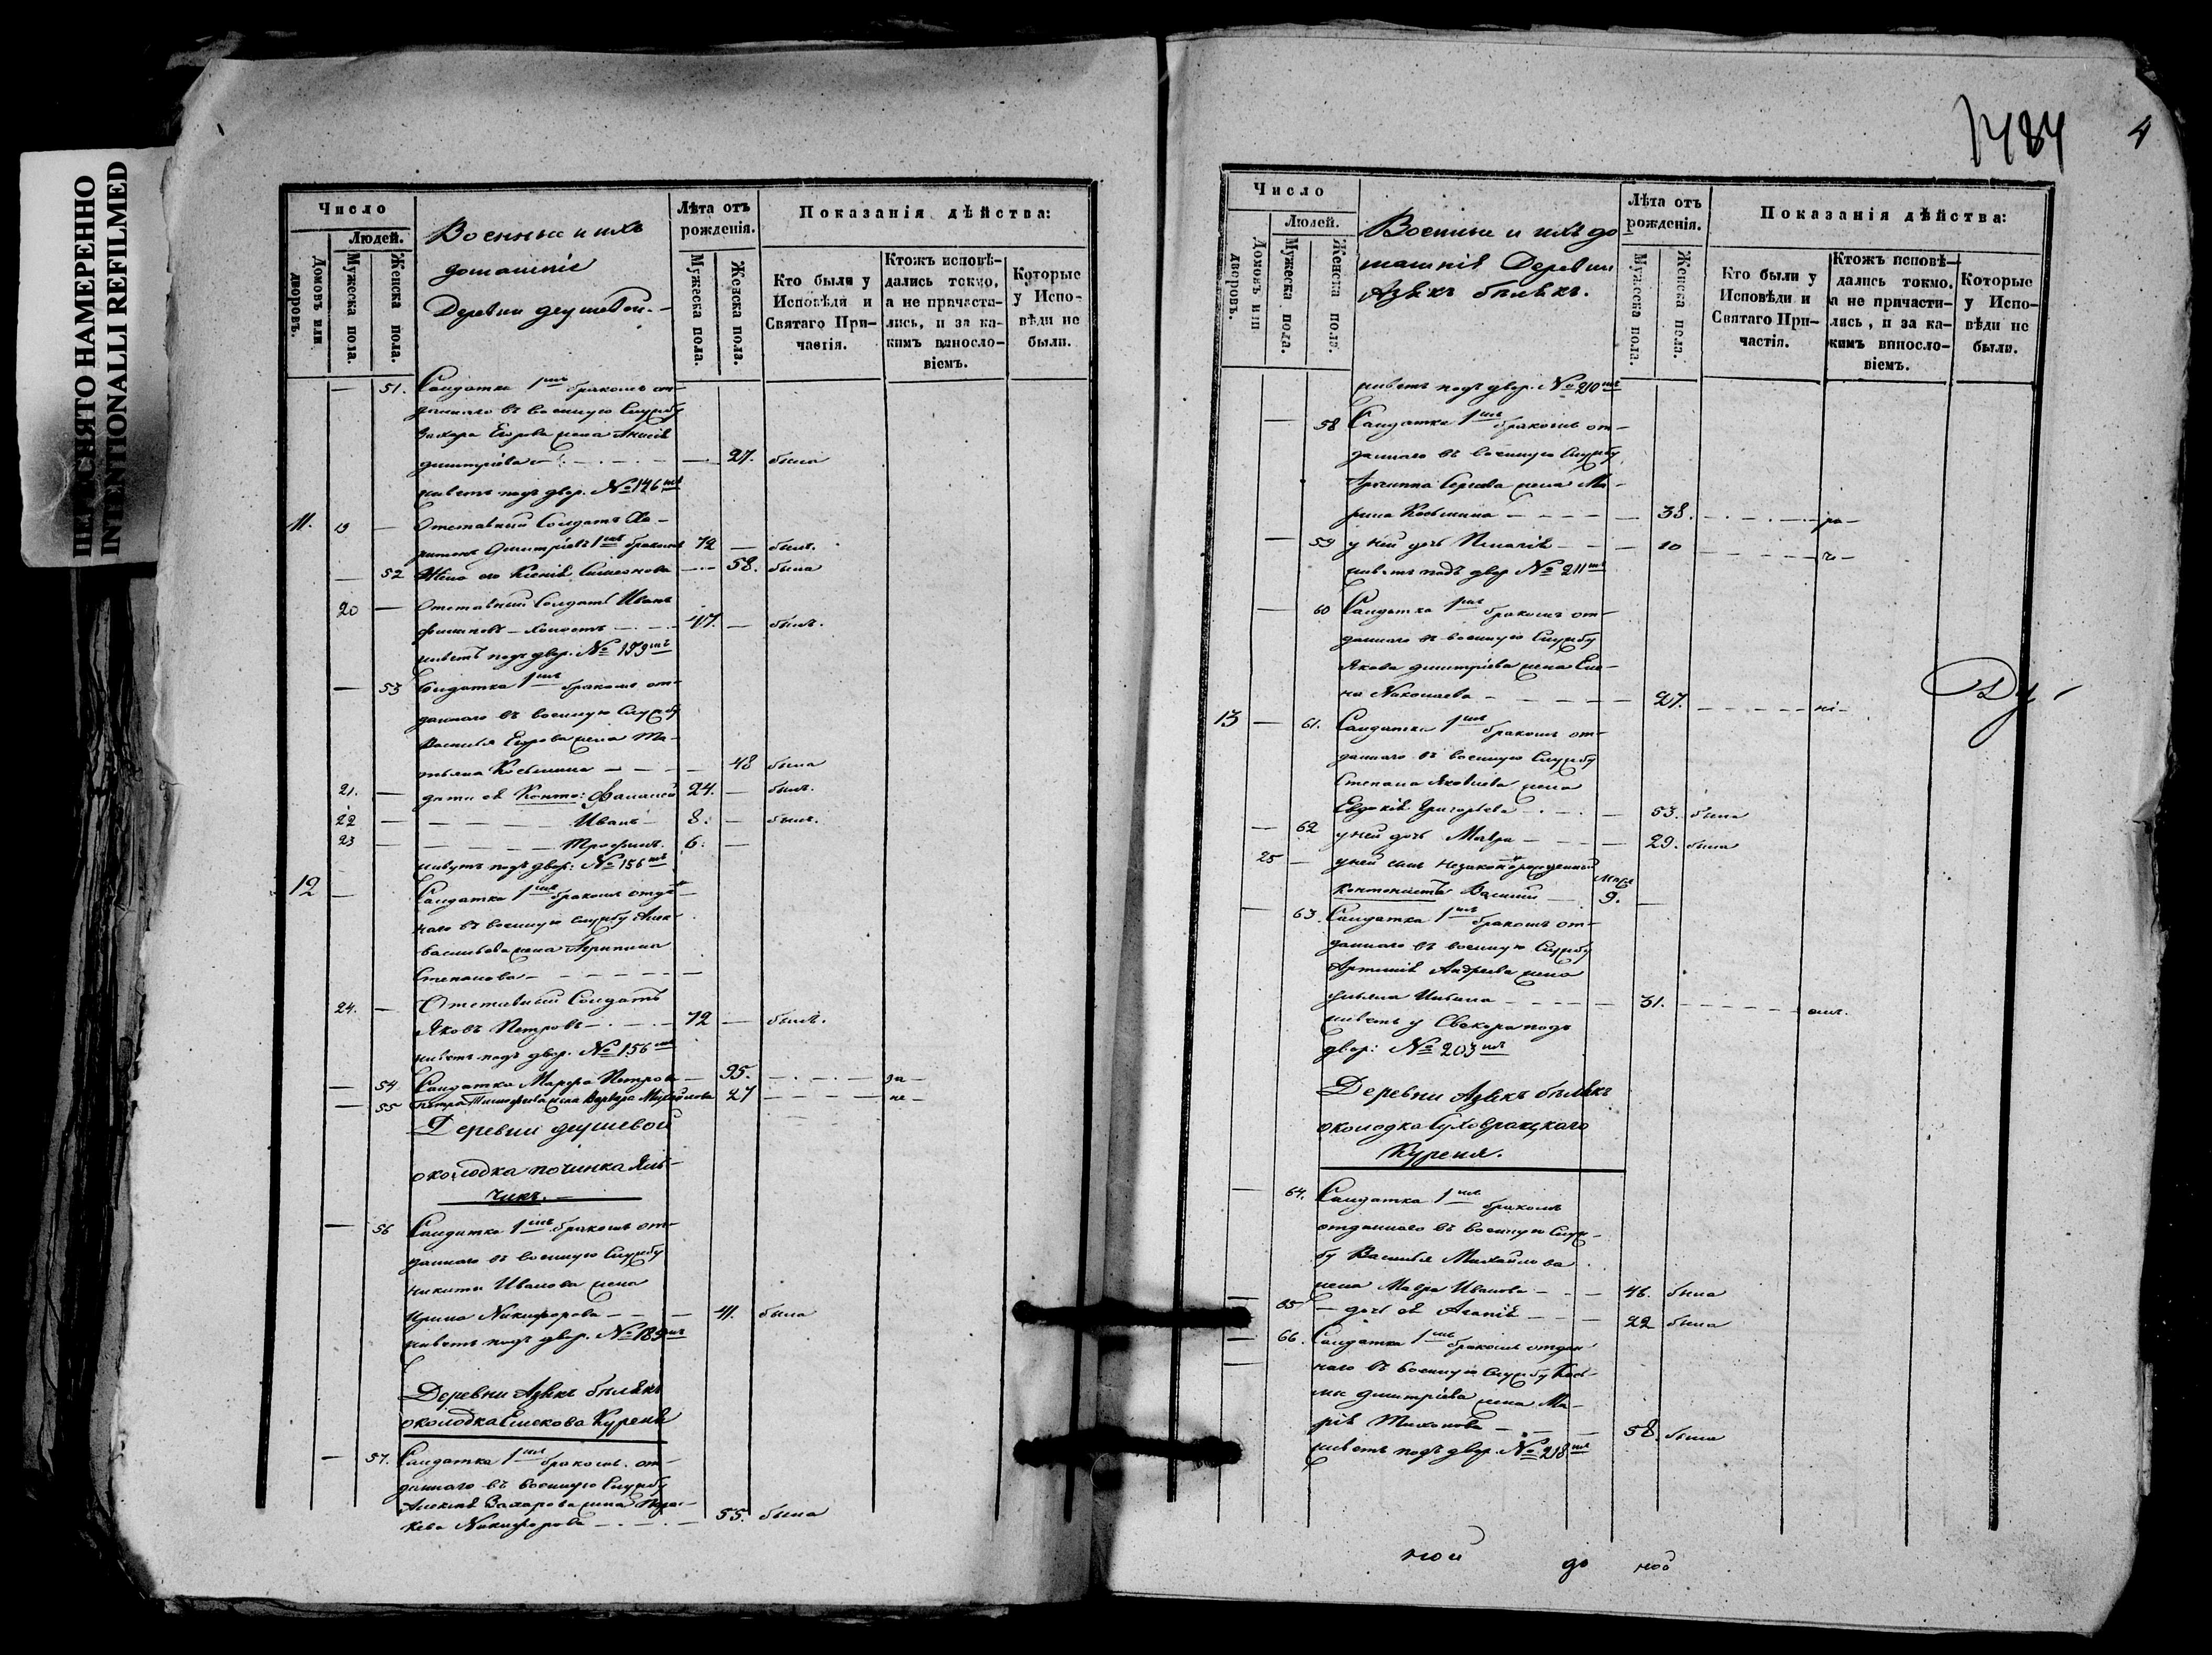 ПЕРЕСНЯТО НАМЕРЕННО
INTENTIONALLI REFILMED
Число
Людей.
Домовъ или дворовъ.
Мужеска пола.
Женска пола.
Военные и ихъ
домашніе
Деревни душевой.
Лѣта отъ рожденія.
Мужеска пола.
Женска пола.
Показанія дѣйства:
Кто были у Исповѣди и Святаго Причастія.
Ктожъ исповѣдались токмо, а не причастились, и за какимъ винословіемъ.
Которые у Исповѣди не были.
51. Салдатка 1мъ бракомъ от-
даннаго въ военную Службу
Захара Егорова жена Анисія
димитріева 27. была
живетъ подъ двор. № 146мъ
11. 19 Отставный Солдатъ Ха-
ритонъ Димитріевъ 1мъ бракомъ 72 былъ.
52 Жена его Ксенія Симеонова 58. была
20 Отставный Солдатъ Иванъ
филиповъ холостъ 47. былъ.
живетъ подъ двор. № 199мъ
53 Салдатка 1мъ бракомъ от-
даннаго въ военную Службу
Василья Егорова жена Та-
тьяна Козьмина 48 была
21. дети ея Канто: Фаланей 24. былъ.
22 Иванъ 8. былъ.
23 Трофимъ. 6.
живутъ подъ двор: № 156мъ
12 Салдатка 1мъ бракомъ отдан-
наго въ военную службу
васильева жена Агрипина
Степанова
24. Отставный Солдатъ
Яковъ Петровъ 72 былъ.
живетъ подъ двор. № 156мъ
54 Салдатка Марфа Петрова 95. за
55 Петра Тимофеева жена Варвара Михайлова 27 не
Деревни душевой
околодка починка Яль-
чикъ.
56 Салдатка 1мъ бракомъ от-
даннаго въ военную Службу
Никиты Иванова жена
Ирина Никифорова 41. была
живетъ подъ двор. № 189мъ
Деревни Азякъ бѣлякъ
околодка Емекова Куреня
57. Салдатка 1мъ бракомъ от-
даннаго въ военную Службу
Алексея Захарова жена Парас-
кева Никифорова 55. была
1484
4
Число
Людей.
Домовъ или дворовъ.
Мужеска пола.
Женска пола.
Военные и ихъ до
машніе Деревни
Азякъ бѣлякъ.
Лѣта отъ рожденія.
Мужеска пола.
Женска пола.
Показанія дѣйства:
Кто были у Исповѣди и Святаго Причастія.
Ктожъ исповѣдались токмо, а не причастились, и за какимъ винословіемъ.
Которые у Исповѣди не были.
живетъ подъ двор. № 210мъ
58 Салдатка 1мъ бракомъ от-
даннаго въ военную Службу
Архиппа Сергеева жена Ма-
рина Козьмина 38. ра
59 у ней дочь Пелагія 10 че
живетъ подъ двор № 211мъ
60 Салдатка 1мъ бракомъ от-
даннаго въ военную Службу
Якова димитріева жена Еле-
на Николаева 27. ні
Ду
13 61. Салдатка 1мъ бракомъ от-
даннаго въ военную Службу
Степана Яковлева жена
Евдокія Григорьева 53. была
62 у ней дочь Мавра 29. была
25 у ней сынъ незаконорожденный
кантонистъ Василий 9.
63. Салдатка 1мъ бракомъ от-
даннаго въ военную Службу
Артемія Андреева жена
Ульяна Ильина 31. емъ.
живетъ у Свекора подъ
двор: № 203мъ
Деревни Азякъ бѣлякъ
околодка Суховражскаго
Куреня.
64. Салдатка 1мъ бракомъ
отданнаго въ военную Служ-
бу Василья Михайлова
жена Мавра Иванова 46. была
65 дочь ея Агапія 22 была
66. Салдатка 1мъ бракомъ отдан
наго въ военную Службу Козь-
мы димитріева жена Ма-
рія Тихонова 58. была
живетъ подъ двор. № 218мъ
ной до ной